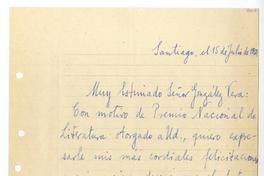 Santiago, el 15 de Julio de 1950
Muy Estimado Señor González Vera:
Con motivo de Premio Nacional de
Literatura otorgado a Ud., quiero expre-
sarle mis más cordiales felicitaciones